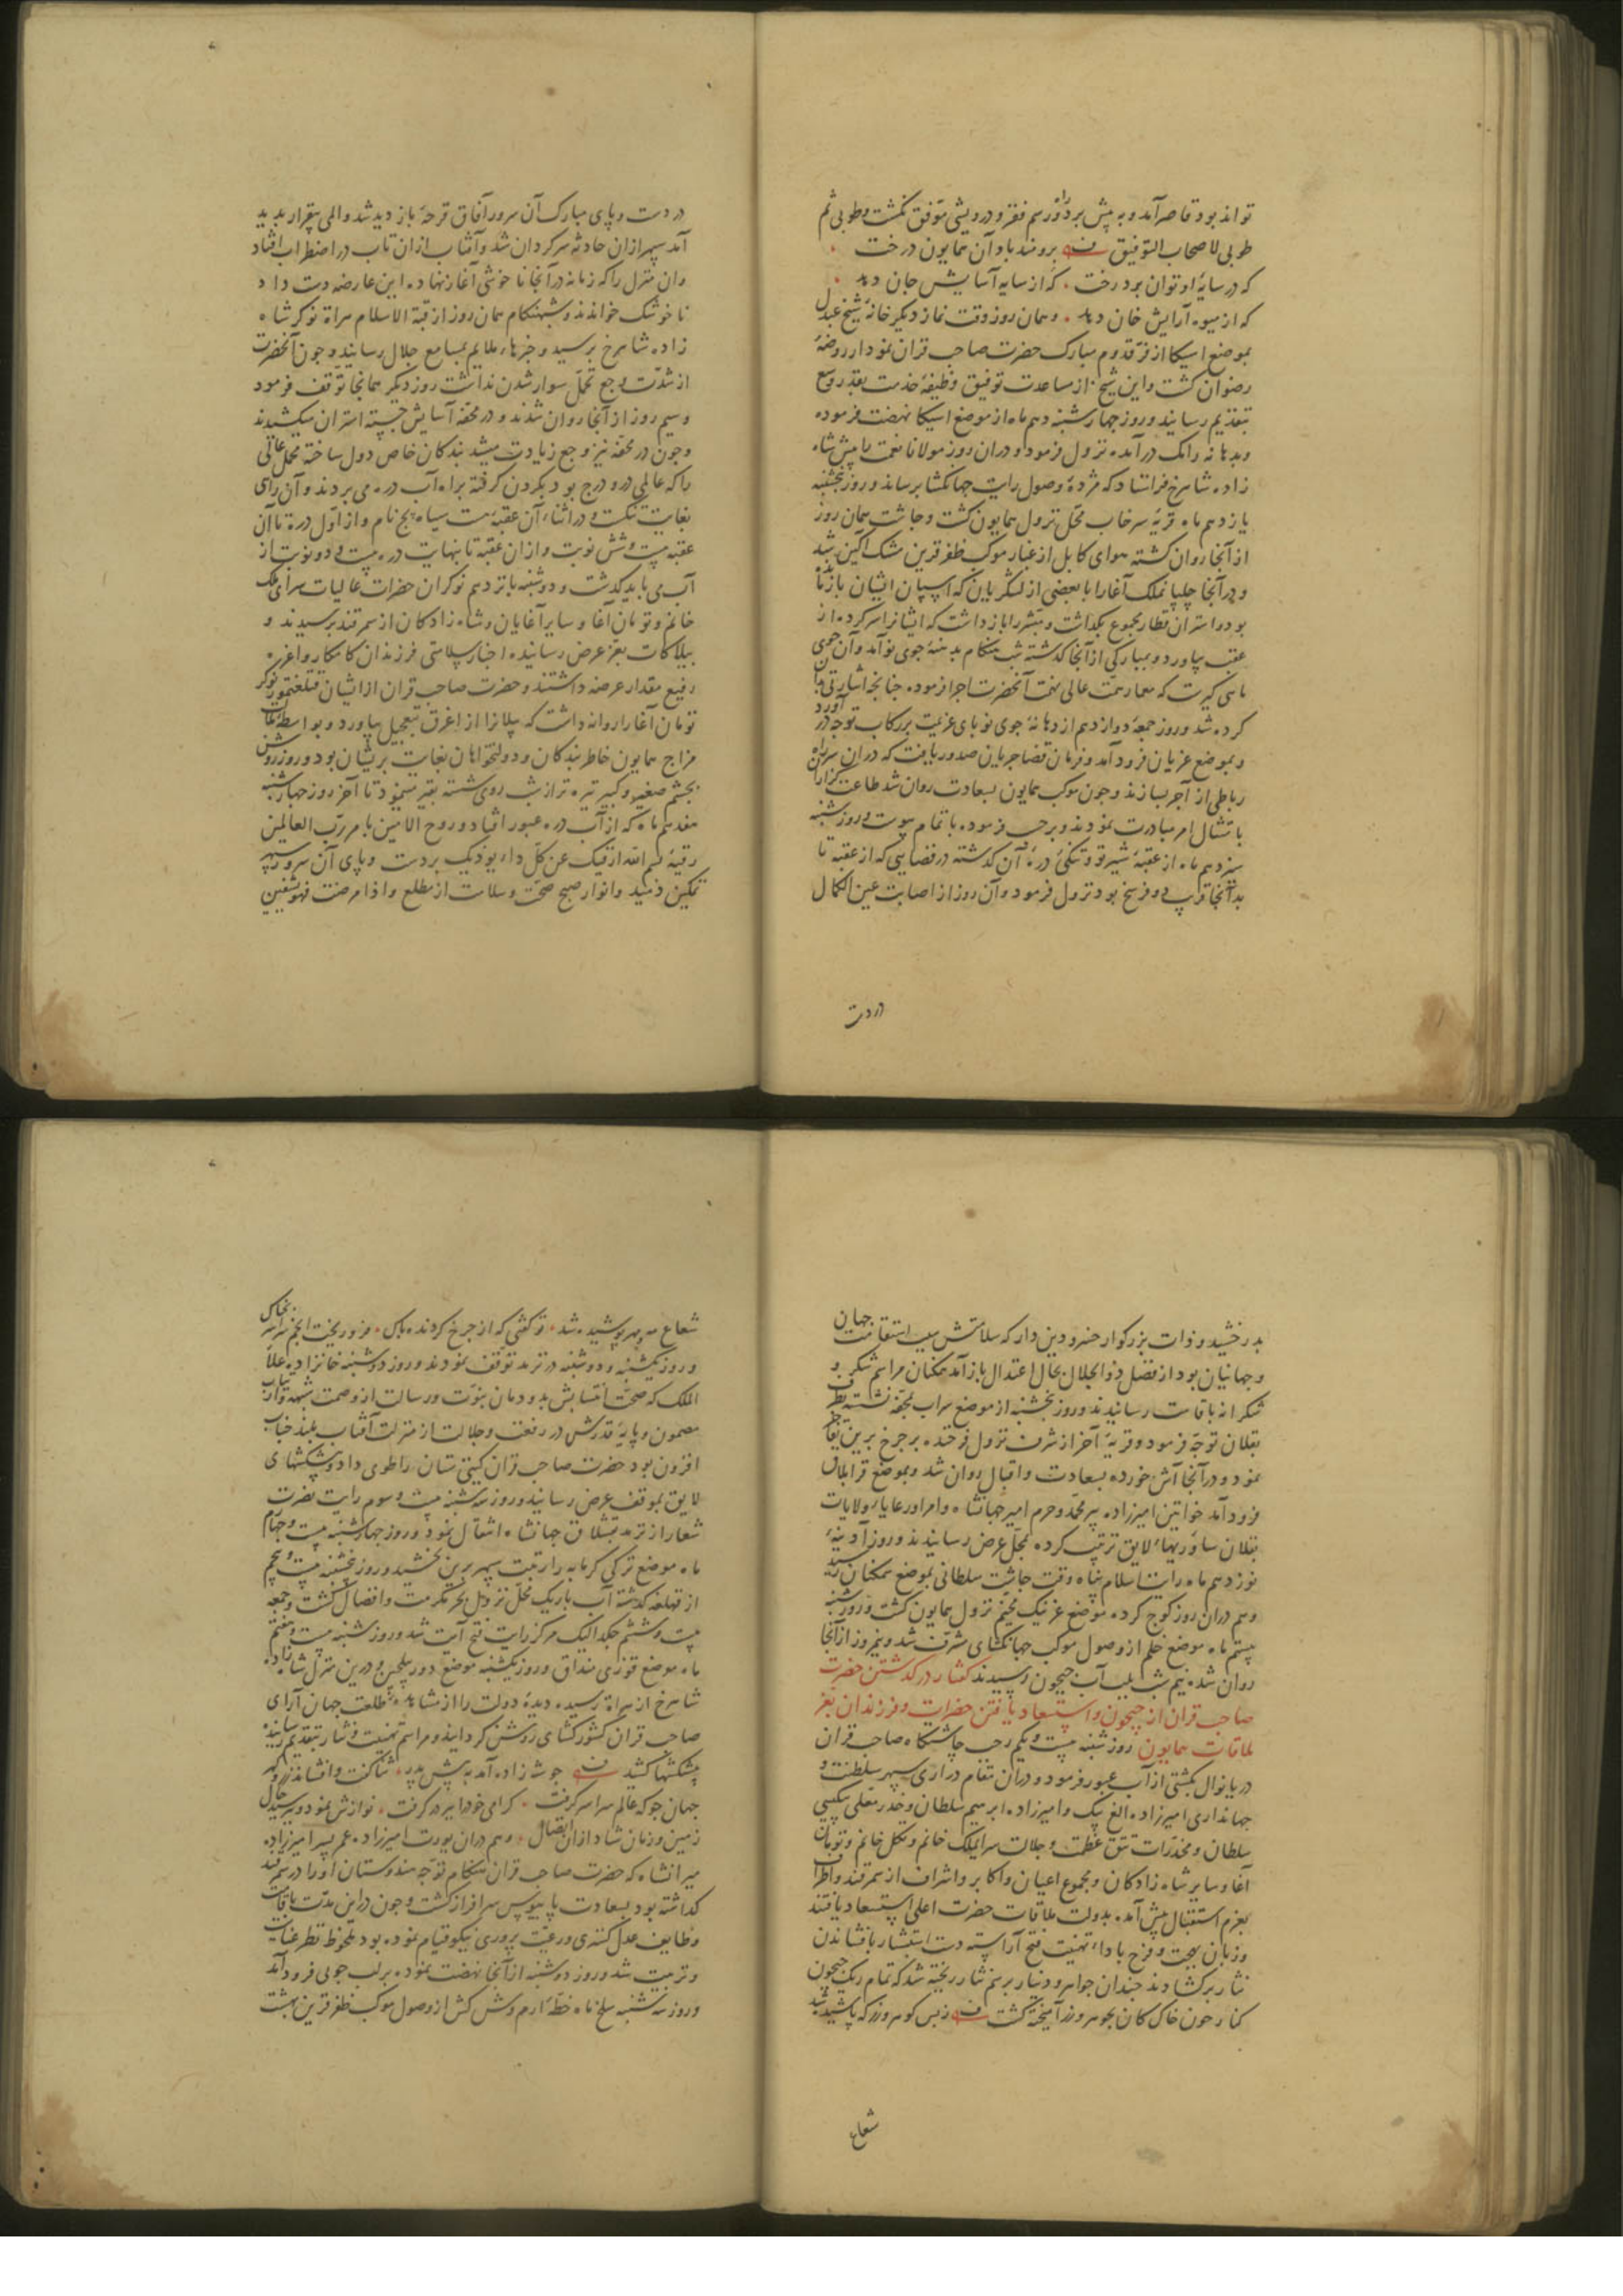 تواند بود قاصر آمد و به پیش برد و رسم فقر و درویشی موفق نکشت وطوبی ثم
طوبی لاصحاب التوفیق برومند باد آن همایون درخت
که در سایهٔ او توان برد رخت که از سایه آسایش جان دهد
که از میوه آرایش خان دهد و همان روز وقت نماز دیکر خانهٔ شیخ عبدل
بموضع اسیکا از فرّ قدوم مبارک حضرت صاحب قران نمودار روضهٔ
رضوان کشت و این شیخ از مساعدت توفیق وظیفهٔ خدمت بقدر وسع
بتقدیم رسانید و روز چهارشنبه دهم ماه از موضع اسیکا نهضت فرموده
و بدهانه رانک درآمده نزول فرمود و دران روز مولانا نعمت با پیش شاه
زاده شاهرخ فرستاد که مژدهٔ وصول رایت جهانکشا برساند و روز پنجشنبه
یازدهم ماه قریهٔ سرخاب محلّ نزول همایون کشت و چاشت همان روز
از آنجا روان کشته هوای کابل از غبار موکب ظفر قرین مشک آکین شد
و در آنجا چلپانملک آغا را با بعضی از لشکریان که اسپان ایشان بازماند
بود و استران قطار مجموع بکذاشت و مبشر را بازداشت که ایشانرا سر کرده از
عقب بیاورد و بمبارکی از آنجا کذشته شب هنکام بدهنهٔ جوی نو آمد و آن جوی
ماهی کیرست که معمار همّت عالی نهمت آنحضرت اجرا فرموده چنانچه اشارتی بدان
کرده شد و روز جمعه دوازدهم از دهانهٔ جوی نو پای عزیمت بر رکاب توجه درآورد
و بموضع غربان فرود آمد و فرمان قضا جریان صدور یافت که دران سر راه
رباطی از آجر بسازند و چون موکب همایون بسعادت روان شد طاعت گزاران
بامتثال امر مبادرت نمودند و برحسب فرموده باتمام پیوست و روز شنبه
سیزدهم ماه از عقبهٔ شیرتو و تنکی درهٔ آن کذشته در فضایی که از عقبه تا
بدانجا قرب دو فرسخ بود نزول فرمود و آن روز از اصابت عین الکمال
در دست
در دست و پای مبارک آن سرور آفاق قرحهٔ باز دید شد و المی بیقرار پدید
آمد سپهر ازان حادثه سرکردان شد و آفتاب ازان تاب در اضطراب افتاد
وان منزل را که زمانه در آنجا ناخوشی آغاز نهاده این عارضه دست داد
ناخوشک خواندند و شبهنکام همان روز از قبّة الاسلام هراة نوکر شاه
زاده شاهرخ برسید و خبرهای ملایم بمسامع جلال رسانید و چون آنحضرت
از شدّت وجع تحمّل سوار شدن نداشت روز دیکر همانجا توقف فرمود
و سیم روز از آنجا روان شدند و در محفّه آسایش جسته استران میکشیدند
و چون در محفّه نیز وجع زیادت میشد بندکان خاص دول ساخته محمل عاقی
را که عالمی درو درج بود بکردن کرفته براه آب دره می بردند و آن راهی
بغایت تنکست و در اثنای آن عقبهٔست سیاه پج نام و از اوّل دره تا آن
عقبه بیست و شش نوبت و ازان عقبه تا نهایت دره بیست و دو نوبت از
آب می باید کذشت و دوشنبه پانزدهم نوکران حضرات عالیات سرای ملک
خانم و تومان آغا و سایر آغایان و شاه زادکان از سمرقند برسیدند و
بیلاکات بعزّ عرض رسانیده اخبار سلامتی فرزندان کامکار و اعزه
رفیع مقدار عرضه داشتند و حضرت صاحب قران از ایشان قتلغتمور نوکر
تومان آغا را روانه داشت که بیلانرا از اغرق بتعجیل بیاورد و بواسطهٔ
مزاج همایون خاطر بندکان و دولتخواهان بغایت پریشان بود و روز روشن
بچشم صغیر و کبیر تیره تر از شب روی شسته بقیر مینمود تا آخر روز چهارشنبه
هفدهم ماه که از آب دره عبور افتاد و روح الامین بامر ربّ العالمین
رقیهٔ بسم الله ارقیک عن کلّ داء یوذیک بر دست و پای آن سرور سپهر
تمکین دمید و انوار صبح صحّت و سلامت از مطلع و اذا مرضت فهو یشفین
بدرخشید و ذات بزرکوار خسرو دین دار که سلامتش سبب استقامت جهان
و جهانیان بود از فضل ذو الجلال بحال اعتدال باز آمد همکنان مراسم شکر و
شکرانه باقامت رسانیدند و روز پنجشنبه از موضع سراب بمحفّه نشسته بطرف
بقلان توجّه فرمود و قریهٔ آخر از شرف نزول فرخنده بر چرخ برین تفاخر
نمود و در آنجا آش خورده بسعادت و اقبال روان شد و بموضع قرابلاق
فرود آمد خواتین امیرزاده پیر محمّد و حرم امیر جهانشاه و امرا و رعایا و ولایات
بقلان ساوریهای لایق ترتیب کرده بمحلّ عرض رسانیدند و روز آدینهٔ
نوزدهم ماه رایت اسلام پناه وقت چاشت سلطانی بموضع سمنکان رسید
و هم دران روز کوچ کرده موضع غزنیک مخیّم نزول همایون کشت و روز شنبه
بیستم ماه موضع خلم از وصول موکب جهانکشای مشرّف شد و نیمروز از آنجا
روان شده نیم شب بلب آب جیحون رسیدند کفتار در کذشتن حضرت
صاحب قران از جیحون و استسعاد یافتن حضرات و فرزندان بعز
ملاقات همایون روز شنبه بیست و یکم رجب چاشتکاه صاحب قران
دریا نوال بکشتی از آب عبور فرمود و دران مقام دراری سپهر سلطنت و
جهانداری امیرزاده الغ بیک و امیرزاده ابرهیم سلطان و خدر معلّی بیکسی
سلطان و مخدّرات تتق عظمت و جلالت سرایملک خانم و تکل خانم و تومان
آغا و سایر شاه زادکان و مجموع اعیان و اکابر و اشراف از سمرقند و اطراف
بعزم استقبال پیش آمده بدولت ملاقات حضرت اعلی استسعاد یافتند
و زبان بهجت و فرح بادای تهنیت فتح آراسته دست استبشار بافشاندن
نثار برکشادند چندان جواهر و دینار بر هم نثار ریخته شد که تمام ریک جیحون
کنار چون خاک کان بجوهر و زر آمیخته کشت ز بس کوهر و زر که پاشیده شد
شعاع
شعاع مه و مهر پوشیده شد تو کفتی که از چرخ کردنده پاک فرو ریخت انجم سراسر بخاک
و روز یکشنبه و دوشنبه در ترمد توقف نمودند و روز دوشنبه خانزاده علا
الملک که صحّت انتسابش بدودمان نبوّت و رسالت از وصمت شبهه و ارتیاب
مصون و پایهٔ قدرش در رفعت و جلالت از منزلت آفتاب بلند جناب
افزون بود حضرت صاحب قران کیتی ستان را طوی داد و پیشکشهای
لایق بموقف عرض رسانید و روز سه شنبه بیست و سوم رایت نصرت
شعار از ترمد بقشلاق جهانشاه انتقال نمود و روز چهارشنبه بیست و چهارم
ماه موضع ترکی کرمابه را رتبت سپهر برین بخشید و روز پنجشنبه بیست و پنجم
از قهلغه کذشته آب باریک محلّ نزول بحر مکرمت و افضال کشت و جمعه
بیست و ششم چکدالیک مرکز رایت فتح آیت شد و روز شنبه بیست و هفتم
ماه موضع قوزی منداق و روز یکشنبه موضع دوربلجین و درین منزل شاه زاده
شاهرخ از هراة رسیده دیدهٔ دولت را از مشاهدهٔ طلعت جهان آرای
صاحب قران کشورکشای روشن کردانید و مراسم تهنیت و نثار بتقدیم رسانیده
پیشکشها کشید چو شه زاده آمد به پیش پدر ثنا کفت و افشاند زر و کهر
جهان جو که عالم سراسر کرفت کرامی خود را ببر در کرفت نوازش نمود و بپرسید حال
زمین و زمان شاد ازان اتصال و هم دران یورت امیرزاده عمر پسر امیرزاده
میرانشاه که حضرت صاحب قران هنکام توجّه هندوستان او را در سمرقند
کذاشته بود بسعادت پایبوس سرافراز کشت و چون دراین مدّت باقامت
وظایف عدل کستری و رعیّت پروری نیکو قیام نموده بود ملحوظ نظر عنایت
و تربیت شد و روز دوشنبه از آنجا نهضت نموده بر لب جویی فرود آمد
و روز سه شنبه سلخ ماه خطّهٔ ارم وش کش از وصول موکب ظفر قرین بهشت